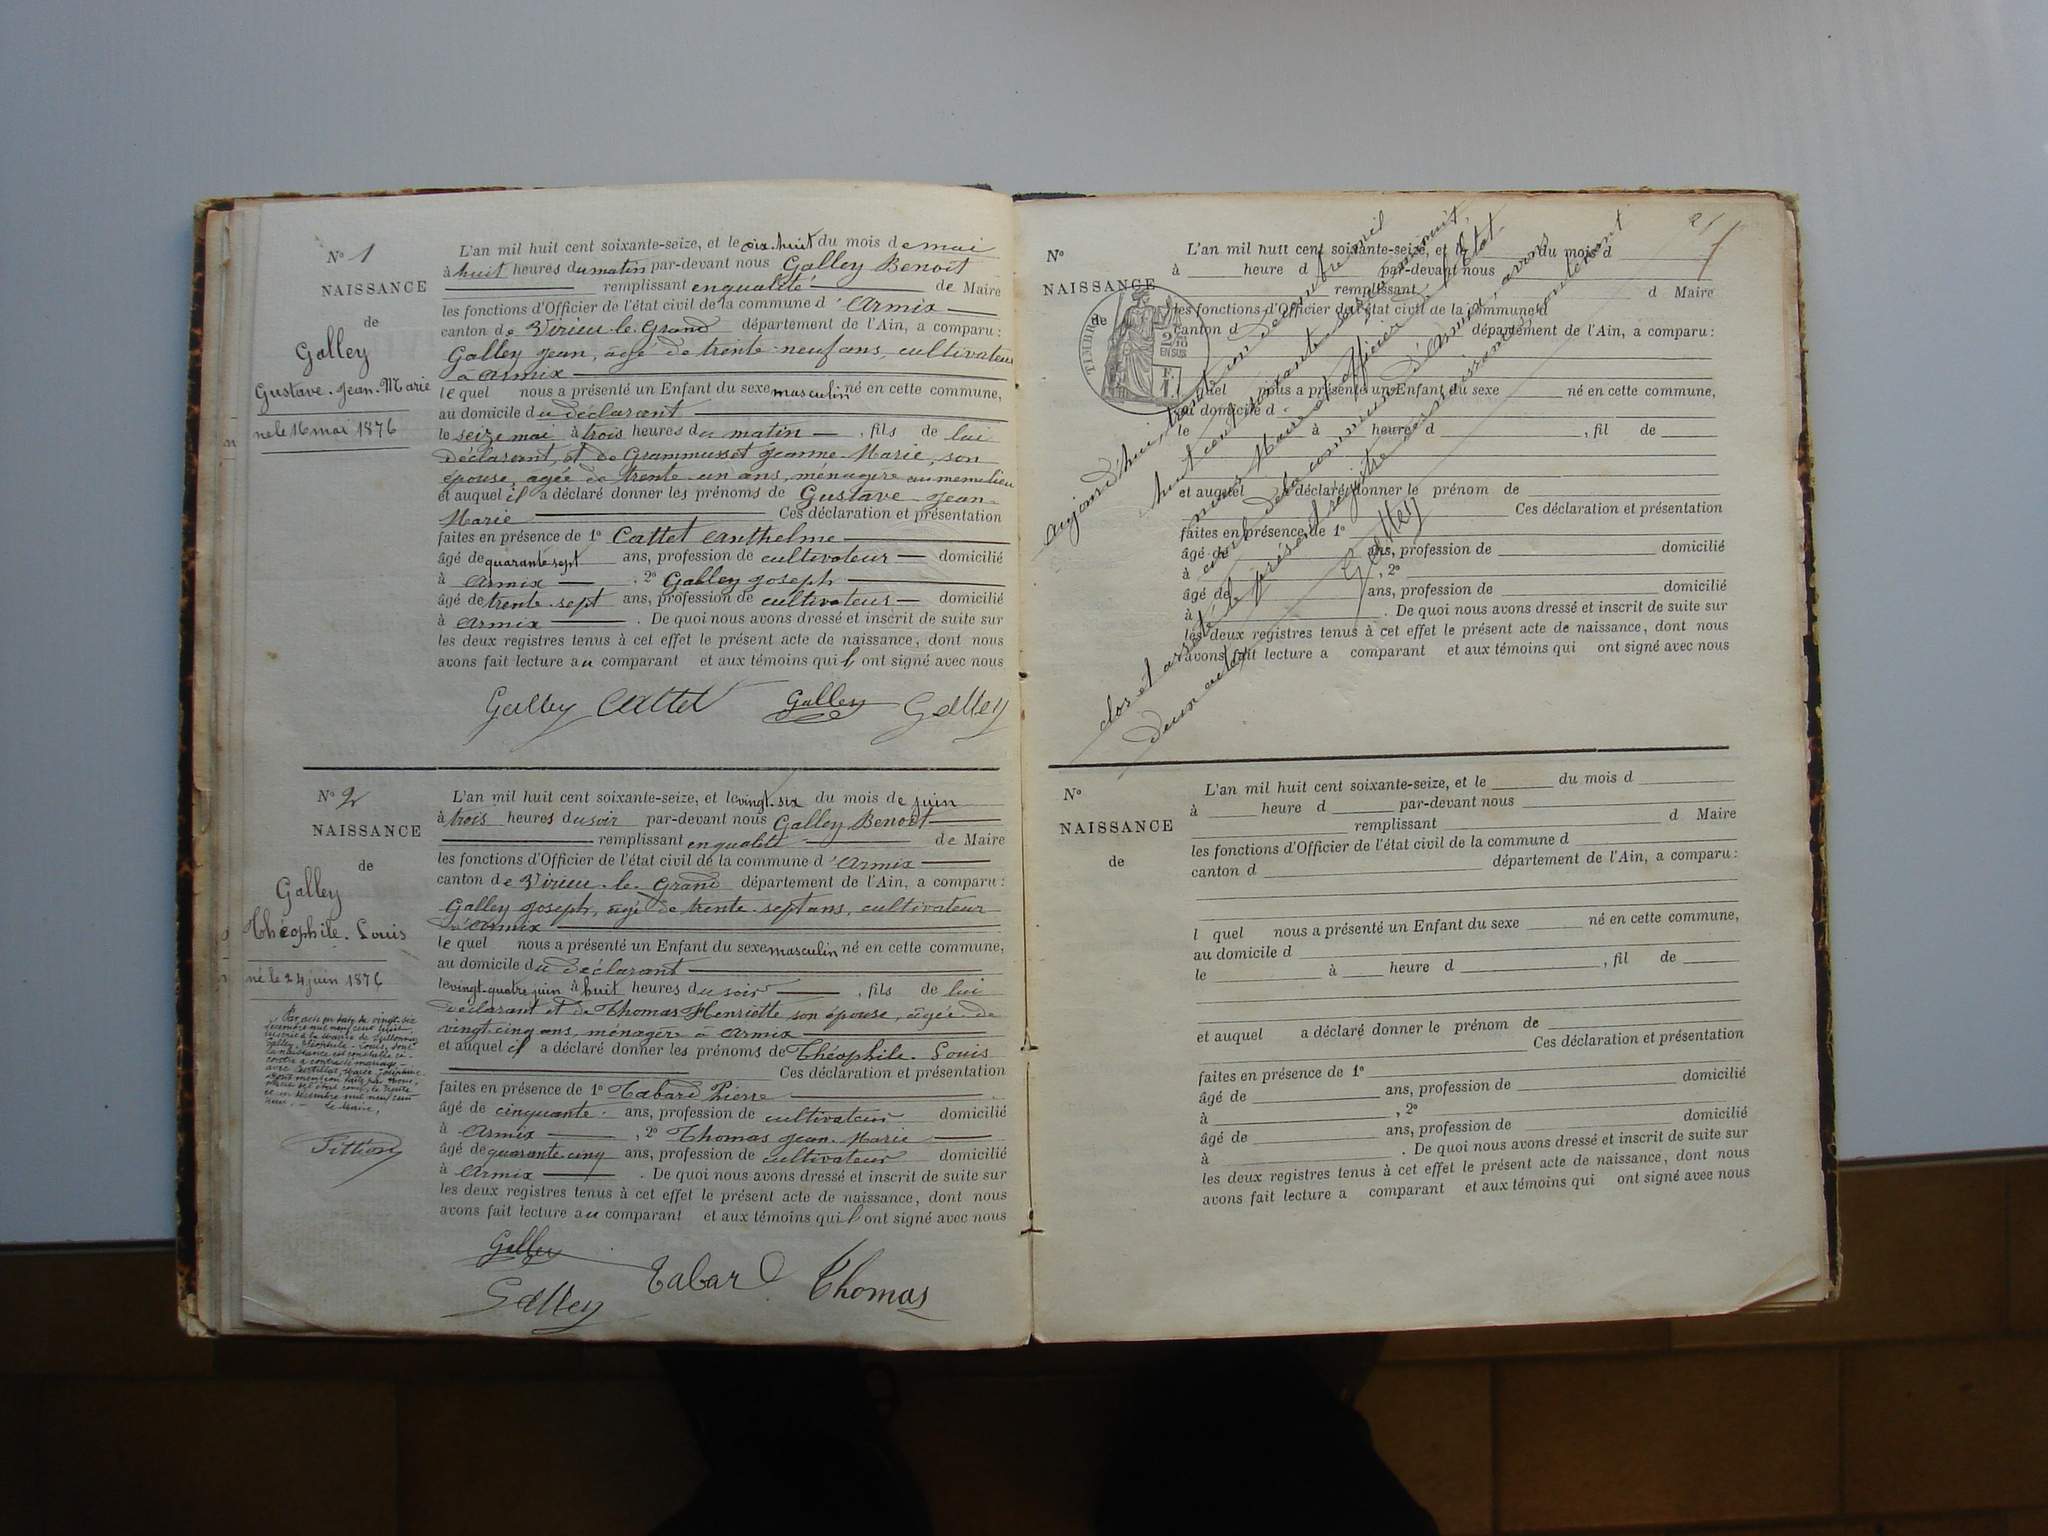 N° 1
NAISSANCE
de
Galley
Gustave. Jean. Marie
né le 16 mai 1876
L'an mil huit cent soixante-seize, et le dix-huit du mois de mai
à huit heures du matin par-devant nous Galley Benoît
remplissant en qualité de Maire
les fonctions d'Officier de l'état civil de la commune d'Armix
canton de Virieu-le-Grand département de l'Ain, a comparu :
Galley Jean, âgé de trente-neuf ans, cultivateur
à Armix
le quel nous a présenté un Enfant du sexe masculin né en cette commune,
au domicile du déclarant
le seize mai à trois heures du matin , fils de lui
déclarant, et de Grammusset Jeanne-Marie, son
épouse, agée de trente-un ans, ménagère au meme lieu
et auquel il a déclaré donner les prénoms de Gustave Jean-
Marie Ces déclaration et présentation
faites en présence de 1° Cattet Anthelme
âgé de quarante sept ans, profession de cultivateur domicilié
à Armix , 2° Galley Joseph
âgé de trente-sept ans, profession de cultivateur domicilié
à Armix . De quoi nous avons dressé et inscrit de suite sur
les deux registres tenus à cet effet le présent acte de naissance, dont nous
avons fait lecture au comparant et aux témoins qui l ont signé avec nous
Galley Cattet Galley Galley
N° 2
NAISSANCE
de
Galley
Théophile. Louis
né le 24 juin 1876
Par acte en date du vingt-six
décembre mil neuf cent huit,
Galley, Théophile-Louis, dont
la naissance est constatée ci-
contre a contracté mariage
avec Marie Joséphine
Dont mention faite par nous,
décembre mil neuf cent
Le Maire,
Tittion
L'an mil huit cent soixante-seize, et le vingt-six du mois de juin
à trois heures du soir par-devant nous Galley Benoît
remplissant en qualité de Maire
les fonctions d'Officier de l'état civil de la commune d'Armix
canton de Virieu-le-Grand département de l'Ain, a comparu :
Galley Joseph, âgé de trente-sept ans, cultivateur
à Armix
le quel nous a présenté un Enfant du sexe masculin né en cette commune,
au domicile du déclarant
le vingt-quatre juin à huit heures du soir , fils de lui
déclarant et de Thomas Henriette son épouse, âgée de
vingt-cinq ans, ménagère à Armix
et auquel il a déclaré donner les prénoms de Théophile. Louis
Ces déclaration et présentation
faites en présence de 1° Tabard Pierre
âgé de cinquante ans, profession de cultivateur domicilié
à Armix , 2° Thomas Jean-Marie
âgé de quarante-cinq ans, profession de cultivateur domicilié
à Armix . De quoi nous avons dressé et inscrit de suite sur
les deux registres tenus à cet effet le présent acte de naissance, dont nous
avons fait lecture au comparant et aux témoins qui l ont signé avec nous
Galley
Galley Tabard Thomas
N°
NAISSANCE
de
TIMBRE
2/10
EN SUS
F.
1
L'an mil huit cent soixante-seize, et le du mois d
à heure d par-devant nous
remplissant d Maire
les fonctions d'Officier de l'état civil de la commune d
canton d département de l'Ain, a comparu :
l quel nous a présenté un Enfant du sexe né en cette commune,
au domicile d
le à heure d , fil de
et auquel a déclaré donner le prénom de
Ces déclaration et présentation
faites en présence de 1°
âgé de ans, profession de domicilié
à , 2°
âgé de ans, profession de domicilié
à . De quoi nous avons dressé et inscrit de suite sur
les deux registres tenus à cet effet le présent acte de naissance, dont nous
avons fait lecture a comparant et aux témoins qui ont signé avec nous
Aujourd'hui, trente-un décembre mil
huit cent soixante-seize, à minuit,
nous Maire et officier de l'État
civil de la commune d'Armix, avons
clos et arrêté le présent registre des naissances, contenant
deux actes
Galley
N°
NAISSANCE
de
L'an mil huit cent soixante-seize, et le du mois d
à heure d par-devant nous
remplissant d Maire
les fonctions d'Officier de l'état civil de la commune d
canton d département de l'Ain, a comparu :
l quel nous a présenté un Enfant du sexe né en cette commune,
au domicile d
le à heure d , fil de
et auquel a déclaré donner le prénom de
Ces déclaration et présentation
faites en présence de 1°
âgé de ans, profession de domicilié
à , 2°
âgé de ans, profession de domicilié
à . De quoi nous avons dressé et inscrit de suite sur
les deux registres tenus à cet effet le présent acte de naissance, dont nous
avons fait lecture a comparant et aux témoins qui ont signé avec nous